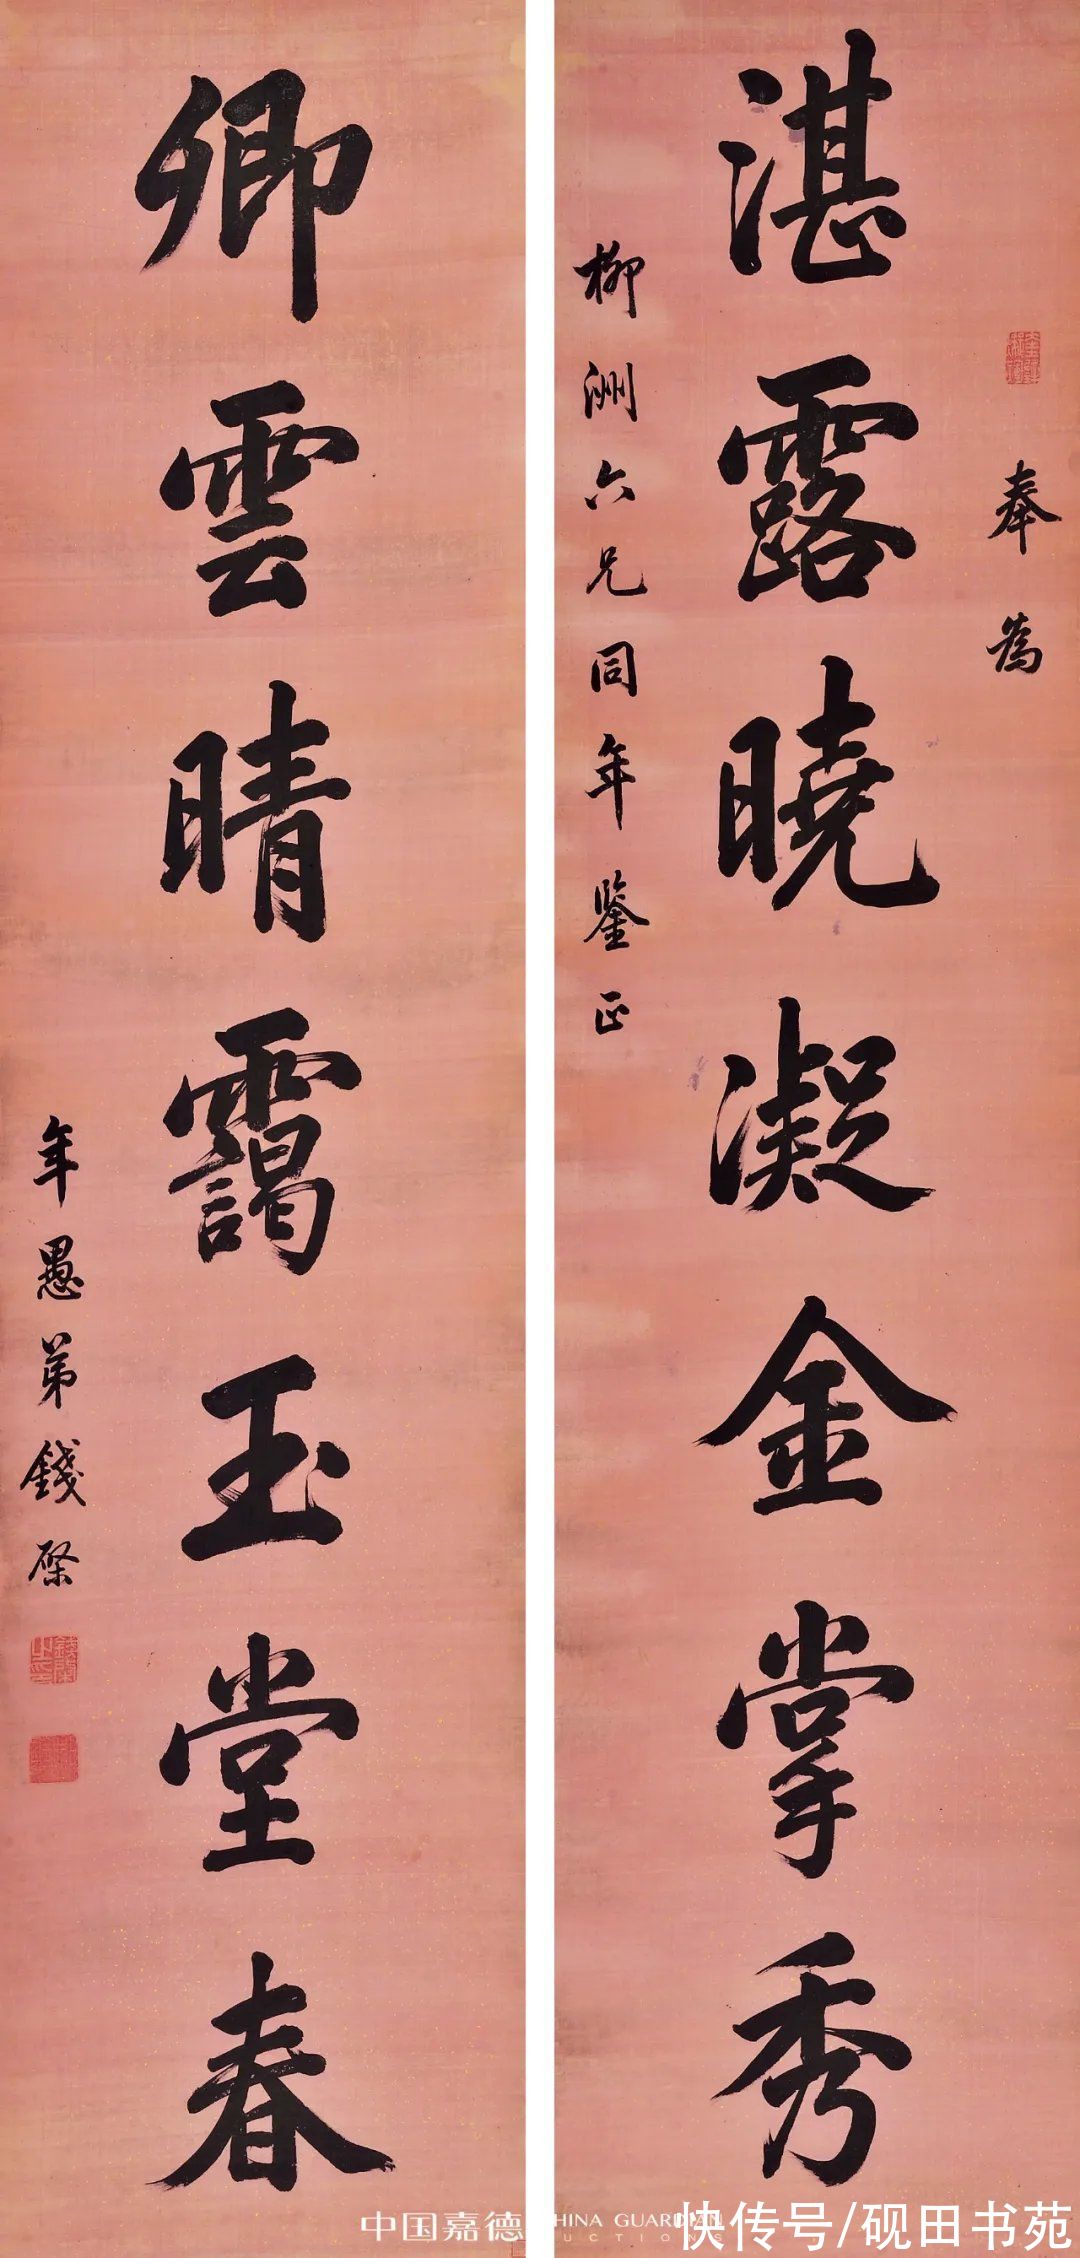 奉為
湛露曉凝金掌秀
柳洲六兄同年鑒正
卿雲晴靄玉堂春
年愚弟錢棨
中国嘉德
CHINA GUARDIAN AUCTIONS
快传号/砚田书苑